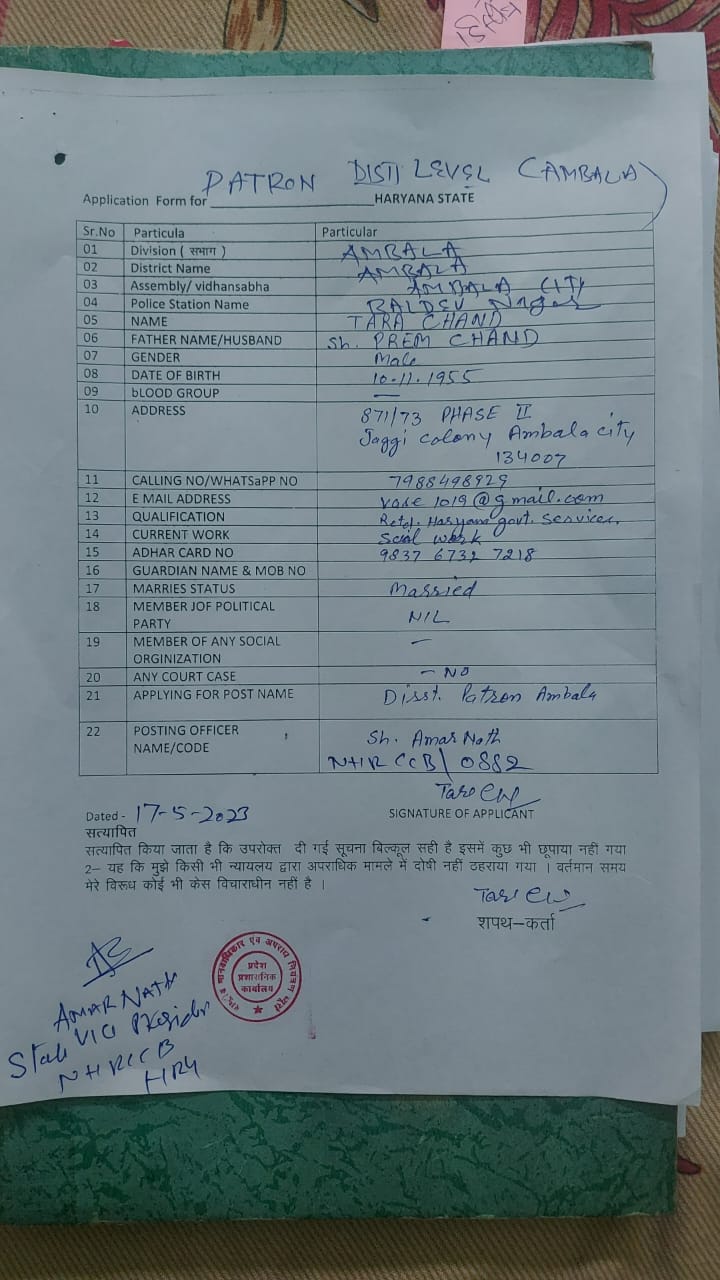 PATRON DISTT LEVEL (AMBALA)
Application Form for HARYANA STATE
Sr.No Particula Particular
01 Division ( सभाग ) AMBALA
02 District Name AMBALA
03 Assembly/ vidhansabha AMBALA CITY
04 Police Station Name BALDEV Nagar
05 NAME TARA CHAND
06 FATHER NAME/HUSBAND Sh. PREM CHAND
07 GENDER Male
08 DATE OF BIRTH 10-11-1955
09 bLOOD GROUP —
10 ADDRESS 871/73 PHASE II
Jaggi colony Ambala city
134007
11 CALLING NO/WHATSaPP NO 7988498929
12 E MAIL ADDRESS 1019@gmail.com
13 QUALIFICATION Retd. Haryana govt. Services
14 CURRENT WORK work
15 ADHAR CARD NO 9837 6732 7218
16 GUARDIAN NAME & MOB NO
17 MARRIES STATUS Married
18 MEMBER JOF POLITICAL
PARTY NIL
19 MEMBER OF ANY SOCIAL —
ORGINIZATION
20 ANY COURT CASE — NO
21 APPLYING FOR POST NAME Disst. Patron Ambala
22 POSTING OFFICER Sh. Amar Nath
NAME/CODE NHRCCB/0882
Dated - 17-5-2023
SIGNATURE OF APPLICANT
सत्यापित
सत्यापित किया जाता है कि उपरोक्त दी गई सूचना बिल्कूल सही है इसमें कुछ भी छूपाया नहीं गया
2– यह कि मुझे किसी भी न्यायलय द्वारा अपराधिक मामले में दोषी नहीं ठहराया गया । वर्तमान समय
मेरे विरूध कोई भी केस विचाराधीन नहीं है ।
शपथ–कर्ता
मानवाधिकार एवं अपराध नियंत्रण ब्यूरो
प्रदेश
प्रशासनिक
कार्यालय
AMAR NATH
State Vice President
NHRCCB
HRY